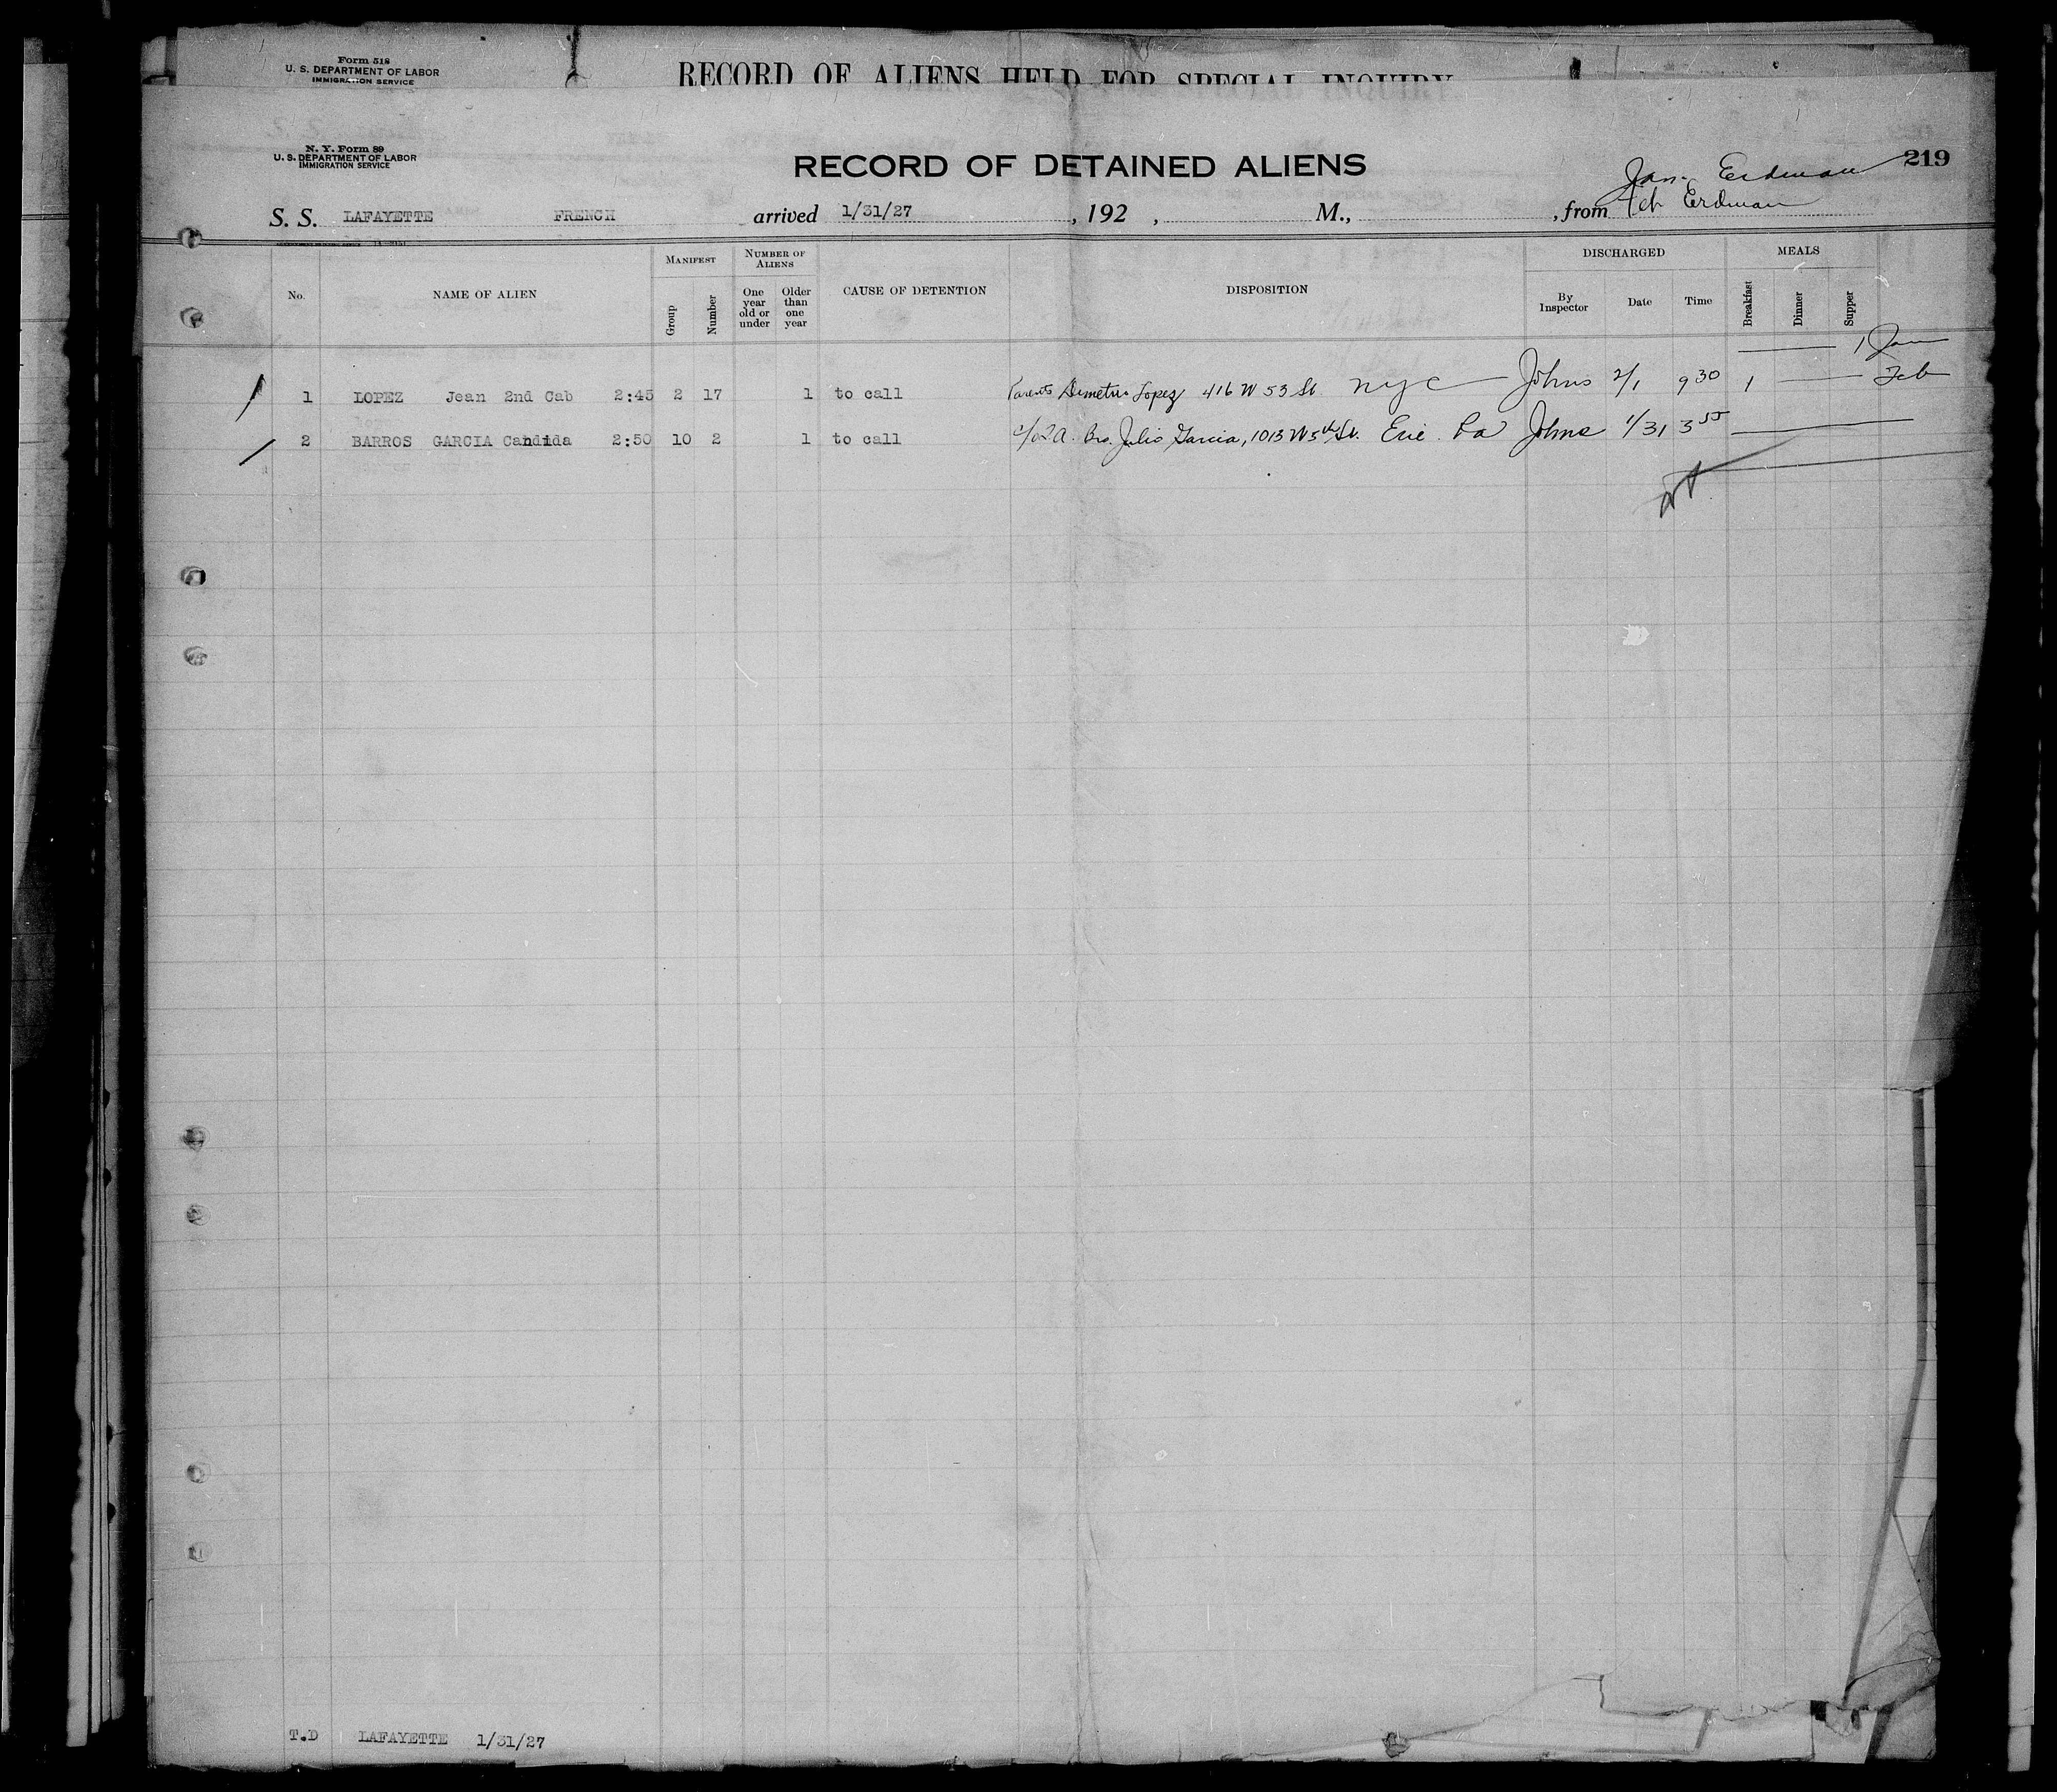 Form 518
U. S. DEPARTMENT OF LABOR
IMMIGRATION SERVICE
RECORD OF ALIENS HELD FOR SPECIAL INQUIRY
N. Y. Form 89
U. S. DEPARTMENT OF LABOR
IMMIGRATION SERVICE
RECORD OF DETAINED ALIENS
219
Jan. Erdman
Feb Erdman
S. S. LAFAYETTE FRENCH arrived 1/31/27, 192 , M., , from
No. NAME OF ALIEN MANIFEST NUMBER OF ALIENS CAUSE OF DETENTION DISPOSITION DISCHARGED MEALS
Group Number One year old or under Older than one year By Inspector Date Time Breakfast Dinner Supper
1 Jan
1 LOPEZ Jean 2nd Cab 2:45 2 17 1 to call Parents Demetrio Lopez 416 W 53 St. NYC Johns 2/1 9 30 1 Feb
2 BARROS GARCIA Candida 2:50 10 2 1 to call Bro. Julio Garcia, 1013 W 5th St. Erie Pa Johns 1/31 3 55
T.D LAFAYETTE 1/31/27